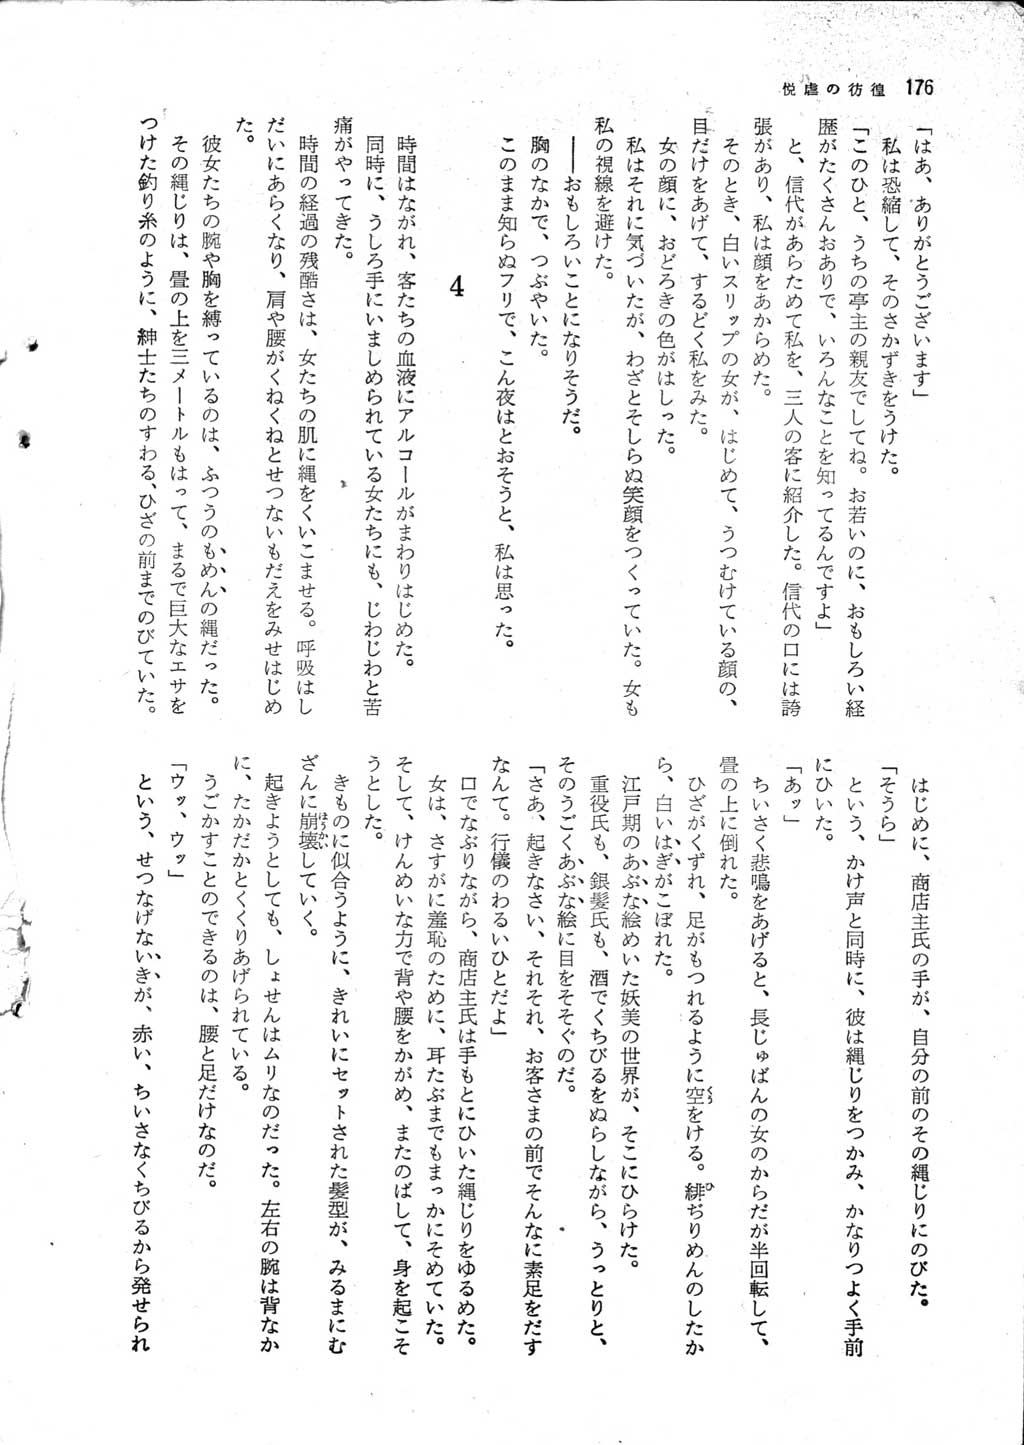 悦虐の彷徨 176
「はあ、ありがとうございます」
私は恐縮して、そのさかずきをうけた。
「このひと、うちの亭主の親友でしてね。お若いのに、おもしろい経
歴がたくさんおありで、いろんなことを知ってるんですよ」
と、信代があらためて私を、三人の客に紹介した。信代の口には誇
張があり、私は顔をあからめた。
そのとき、白いスリップの女が、はじめて、うつむけている顔の、
目だけをあげて、するどく私をみた。
女の顔に、おどろきの色がはしった。
私はそれに気づいたが、わざとそしらぬ笑顔をつくっていた。女も
私の視線を避けた。
――おもしろいことになりそうだ。
胸のなかで、つぶやいた。
このまま知らぬフリで、こん夜はとおそうと、私は思った。
4
時間はながれ、客たちの血液にアルコールがまわりはじめた。
同時に、うしろ手にいましめられている女たちにも、じわじわと苦
痛がやってきた。
時間の経過の残酷さは、女たちの肌に縄をくいこませる。呼吸はし
だいにあらくなり、肩や腰がくねくねとせつないもだえをみせはじめ
た。
彼女たちの腕や胸を縛っているのは、ふつうのもめんの縄だった。
その縄じりは、畳の上を三メートルもはって、まるで巨大なエサを
つけた釣り糸のように、紳士たちのすわる、ひざの前までのびていた。
はじめに、商店主氏の手が、自分の前のその縄じりにのびた。
「そうら」
という、かけ声と同時に、彼は縄じりをつかみ、かなりつよく手前
にひいた。
「あッ」
ちいさく悲鳴をあげると、長じゅばんの女のからだが半回転して、
畳の上に倒れた。
ひざがくずれ、足がもつれるように空をける。緋ぢりめんのしたか
ら、白いはぎがこぼれた。
江戸期のあぶな絵めいた妖美の世界が、そこにひらけた。
重役氏も、銀髪氏も、酒でくちびるをぬらしながら、うっとりと、
そのうごくあぶな絵に目をそそぐのだ。
「さあ、起きなさい、それそれ、お客さまの前でそんなに素足をだす
なんて。行儀のわるいひとだよ」
口でなぶりながら、商店主氏は手もとにひいた縄じりをゆるめた。
女は、さすがに羞恥のために、耳たぶまでもまっかにそめていた。
そして、けんめいな力で背や腰をかがめ、またのばして、身を起こそ
うとした。
きものに似合うように、きれいにセットされた髪型が、みるまにむ
ざんに崩壊していく。
起きようとしても、しょせんはムリなのだった。左右の腕は背なか
に、たかだかとくくりあげられている。
うごかすことのできるのは、腰と足だけなのだ。
「ウッ、ウッ」
という、せつなげないきが、赤い、ちいさなくちびるから発せられ